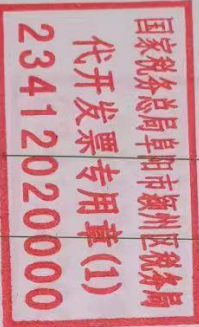 国家税务总局阜阳市颍州区税务局
代开发票专用章(1)
23412020000